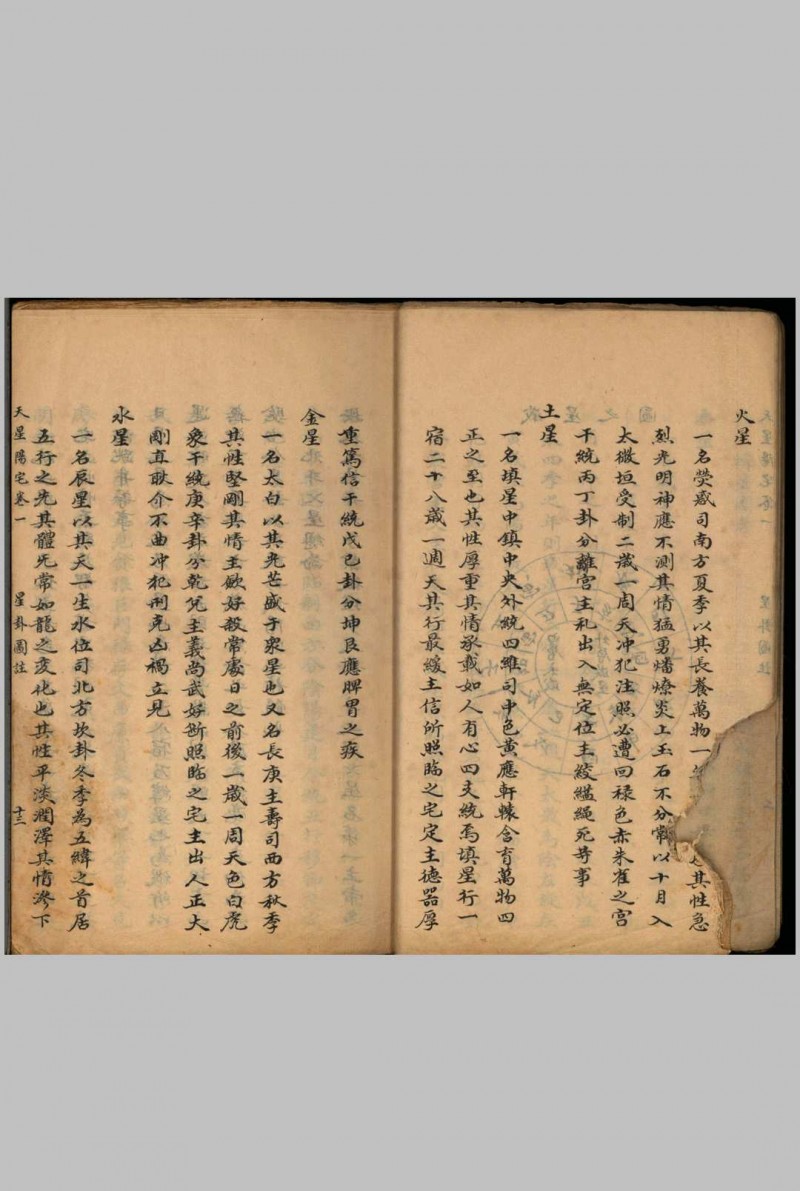 火星
一名熒惑司南方夏季以其長養萬物一其性急
烈光明神應不測其情猛勇燔燎炎上玉石不分常以十月入
太微垣受制二歲一周天冲犯注照必遭回祿色赤朱雀之宮
干統丙丁卦分離宮主礼出入無定位主絞縊繩死等事
土星
一名填星中鎮中央外統四維司中色黃應軒轅含育萬物四
正之至也其性厚重其情承載如人有心四支統焉填星行一
宿二十八歲一週天其行最緩主信所照臨之宅定主德器厚
重篤信干統戊己卦分坤艮應脾胃之疾
金星
一名太白以其光芒盛于衆星也又名長庚主壽司西方秋季
其性堅剛其情主欲好殺常處日之前後一歲一周天色白虎
象干統庚辛卦分乾兌主義尚武好断照臨之宅主出人正大
剛直耿介不曲冲犯刑克凶禍立見
水星
一名辰星以其天一生水位司北方坎卦冬季為五緯之首居
五行之先其體旡常如龍之变化也其性平淡潤澤其情滲下
天星陽宅卷一 星卦圖註 十二